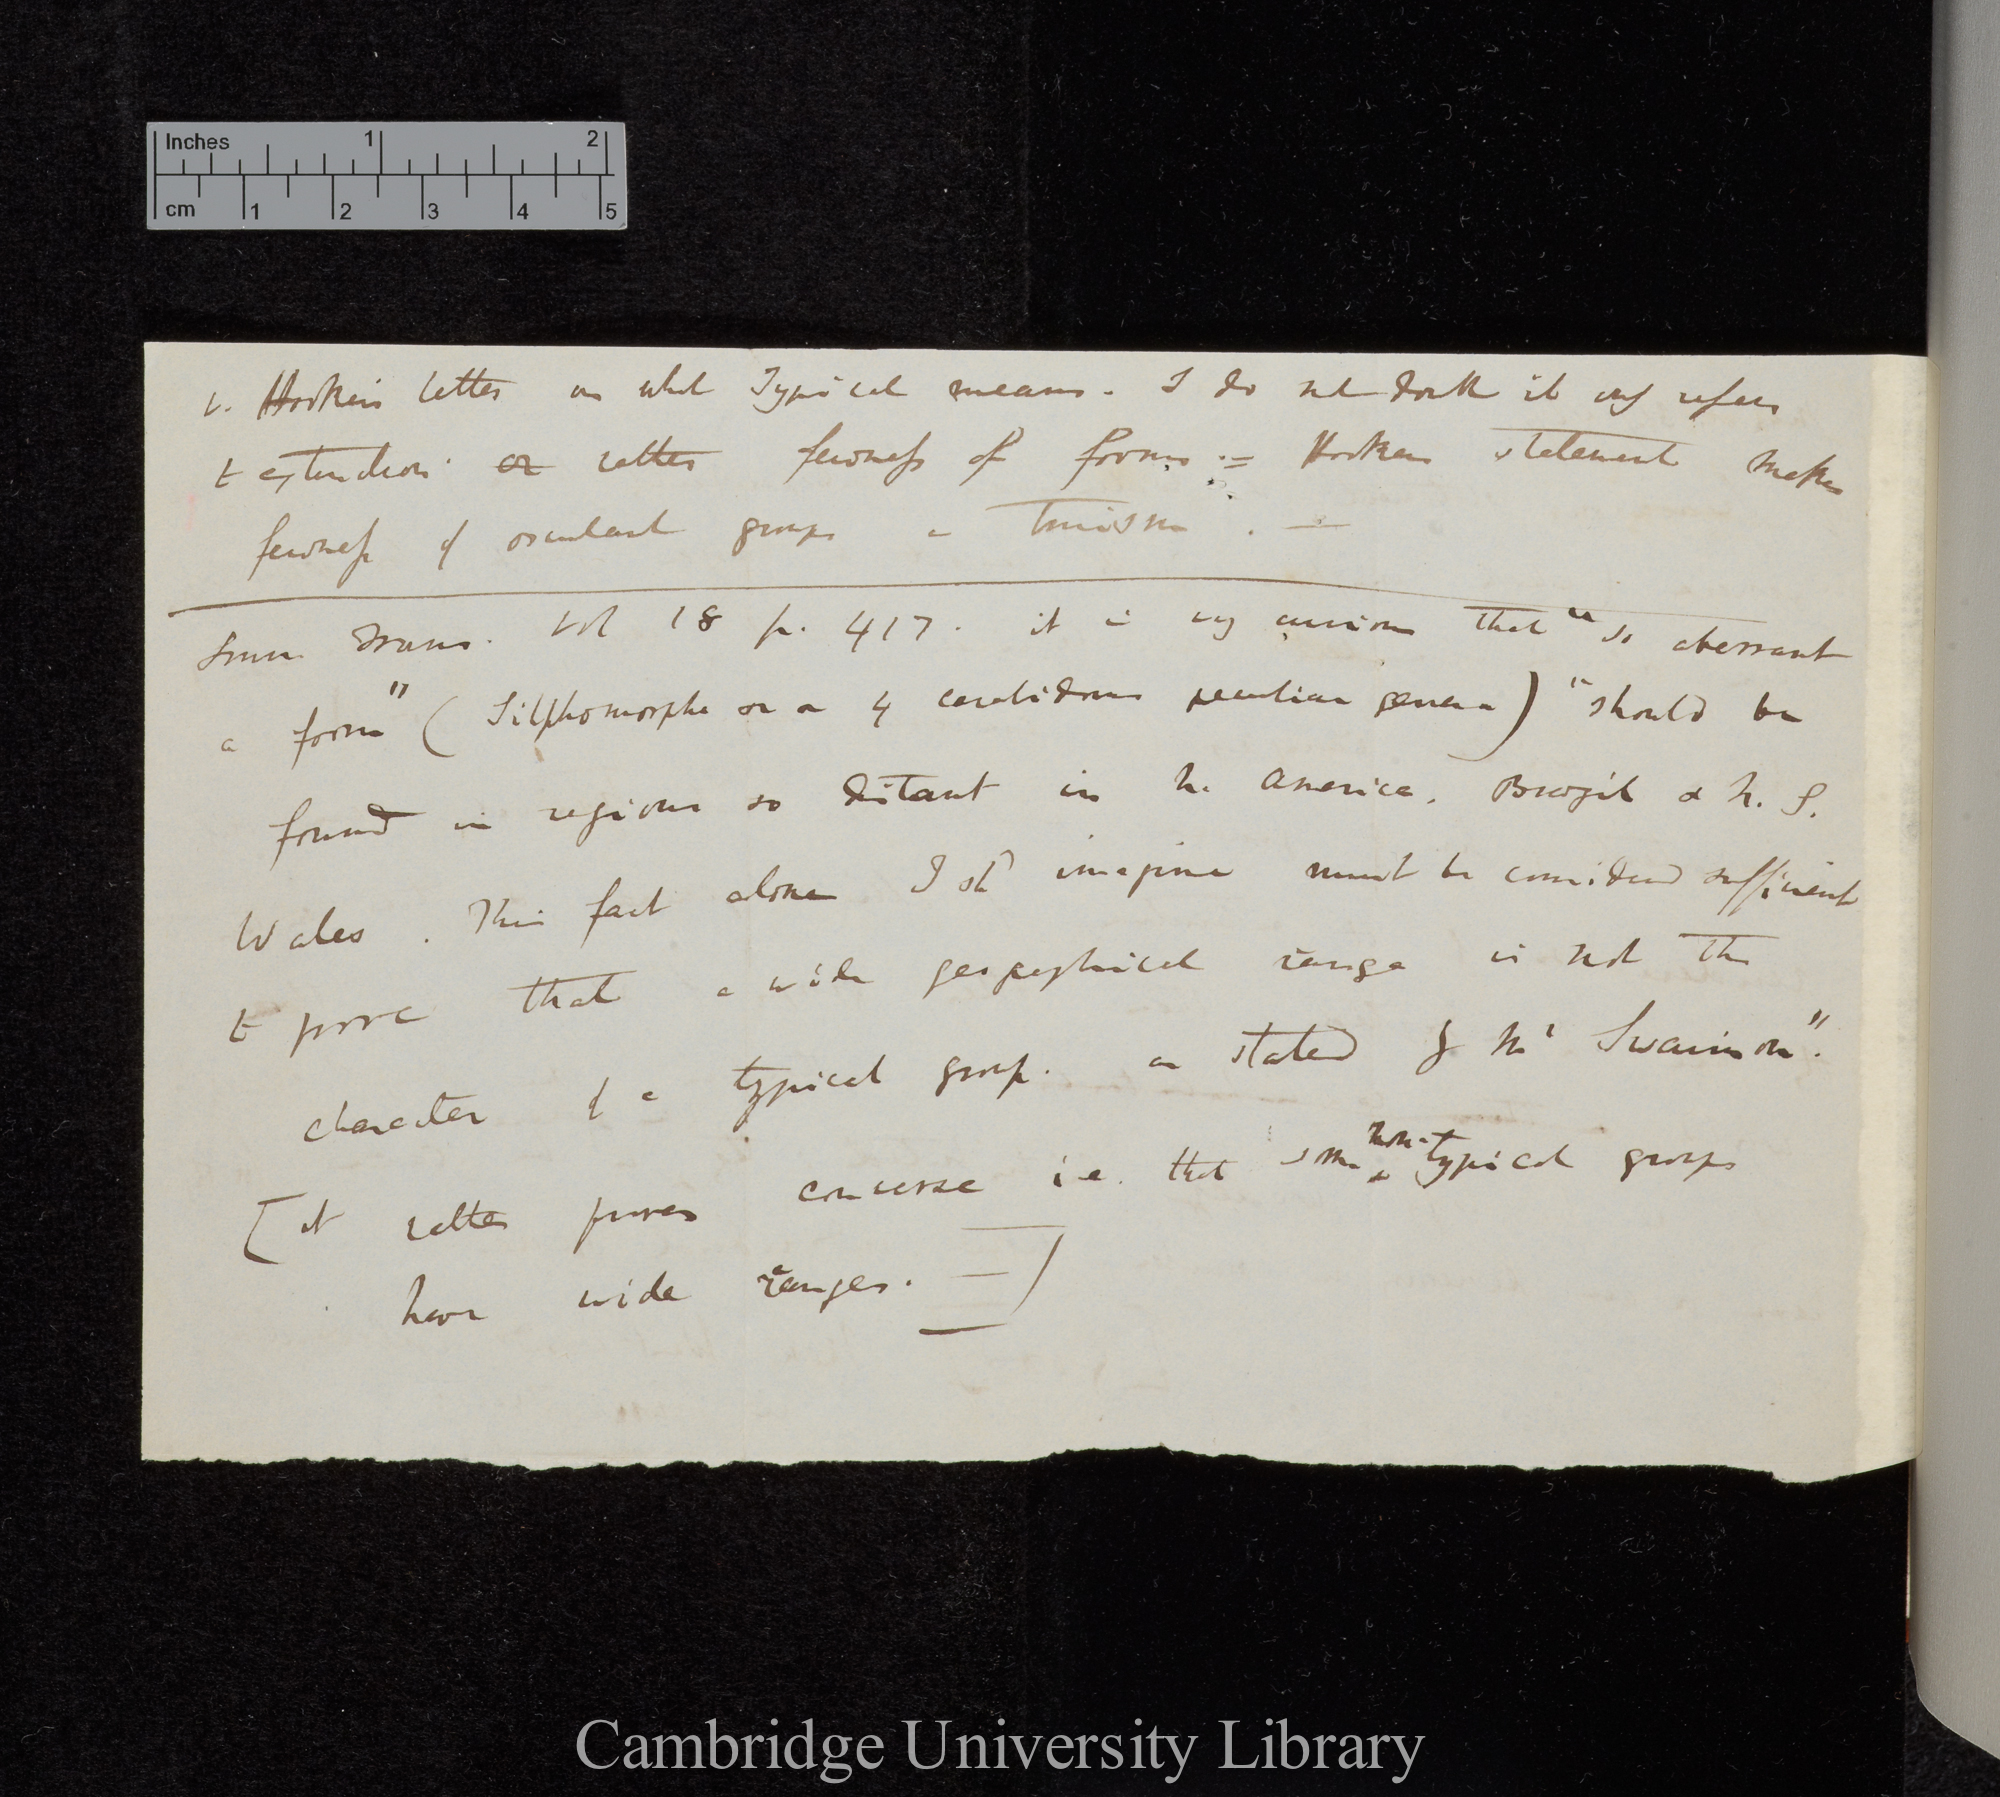 Inches 1 2
cm 1 2 3 4 5
v. Hooker's letter on what Typical means. I do not doubt it only refers
to extinction or rather fewness of forms := Hookers statement makes
fewness of osculant groups a Truism . —
Linn Trans. Vol 18 p. 417. it is very curious that "so aberrant
a form" (Silphomorpha one of carabidous peculiar genera) "should be
found in regions so distant in N. America, Brazil & N. S.
Wales. This fact alone I shd imagine must be considered sufficient
to prove that a wide geographical range is not the
character of a typical group. as stated by Mr Swainson".
[it rather proves converse i.e. that some non-typical groups
have wide ranges. — ]
Cambridge University Library